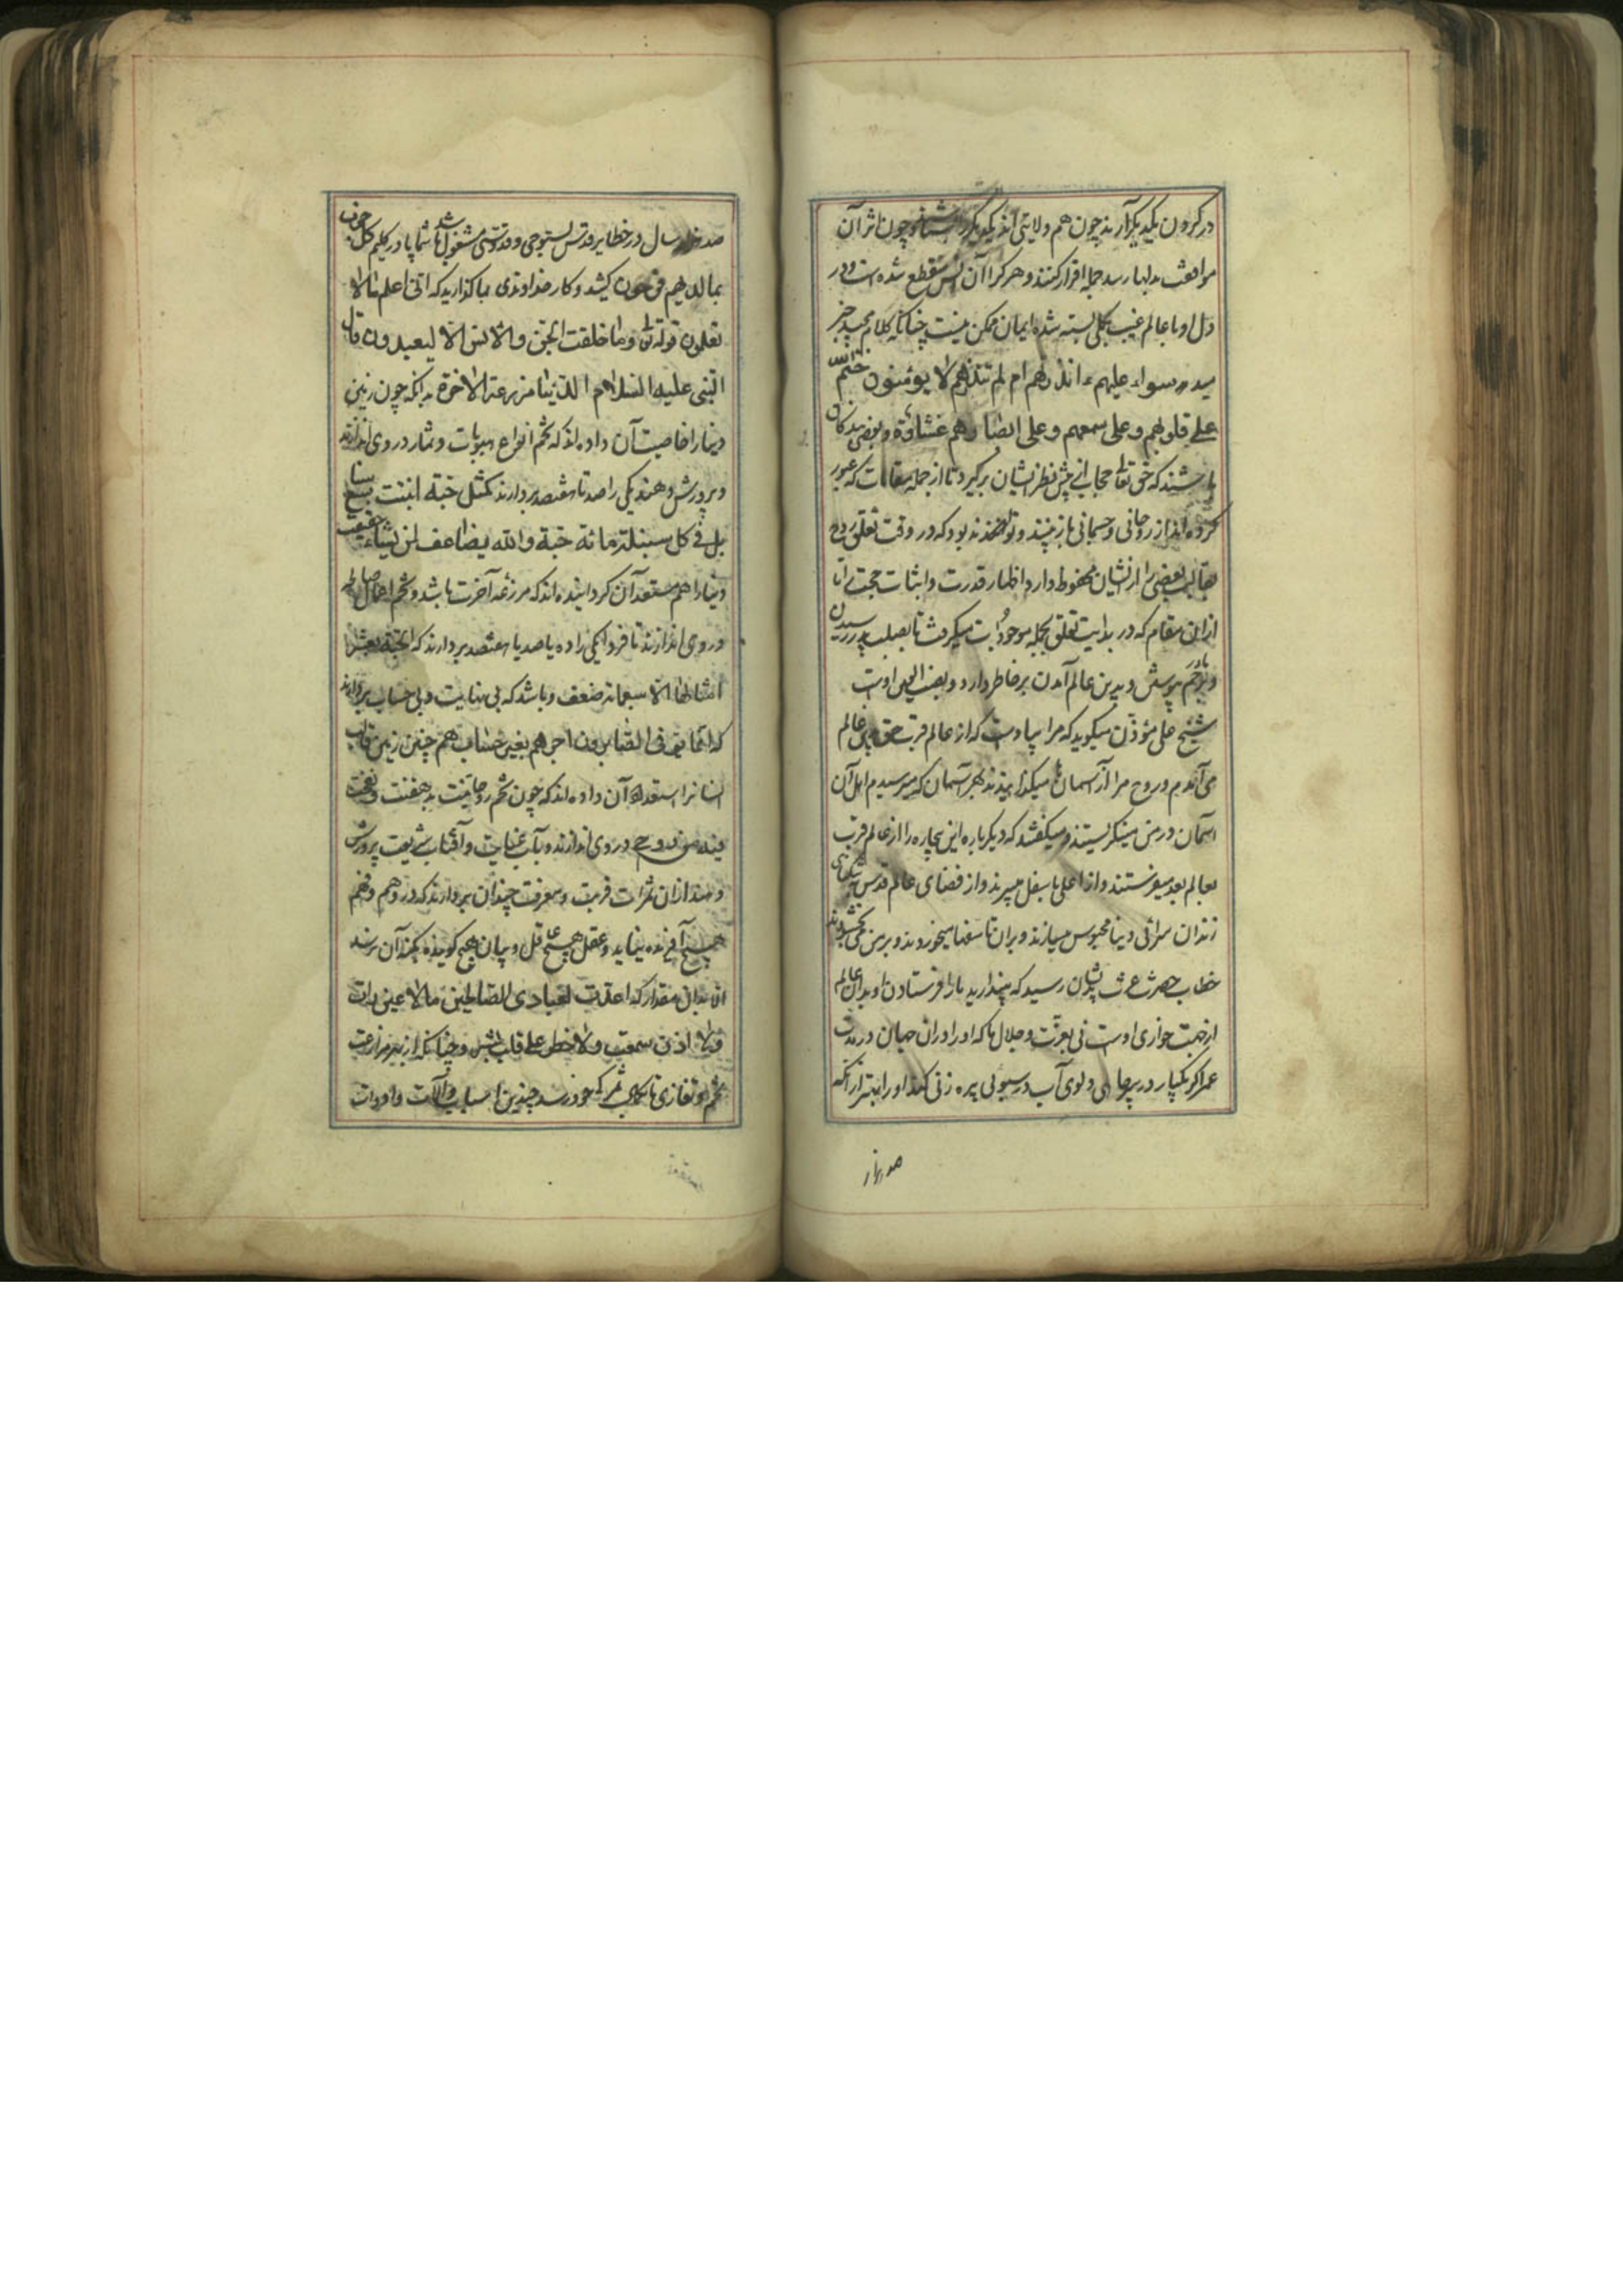 در گردن یکدیگر آرند چون هم ولایتی اند یکدیگر را شناسند چون اثر آن
موافقت بدلها رسد جمله اقرار کنند و هر کرا آن انس منقطع شده است و در
دل او با عالم غیب بکلی بسته شده ایمان ممکن نیست چنانکه کلام مجید خبر
میدهد سواء علیهم ءانذرتهم ام لم تنذرهم لا یؤمنون ختم الله
علی قلوبهم و علی سمعهم و علی ابصارهم غشاوة و بعضی بندگان
باشند که حق تعالی حجاب از پیش نظر ایشان برگیرد تا از جمله مقامات که عبور
کرده اند از روحانی و جسمانی باز بینند و تواند بود که در وقت تعلق روح
بقالب بعضی را از نسیان محفوظ دارد اظهار قدرت و اثبات حجت را تا
از این مقام که در بدایت تعلق بجمله موجودات میگرفت تا بصلب پدر رسیدن
و برحم مادر پیوستن و بدین عالم آمدن بر خاطر دارد و نصب العین اوست
شیخ علی مؤذن میگوید که مرا بیادست که از عالم قرب حق بدین عالم
می آمدم و روح مرا از آسمانها میگذرانیدند بهر آسمان که میرسیدم اهل آن
آسمان در من مینگریستند و میگفتند که دیگر باره این بیچاره را از عالم قرب
بعالم بعد میفرستند و از اعلی باسفل میبرند و از فضای عالم قدس بتنگنای
زندان سرای دنیا محبوس میسازند و بران تاسفها میخوردند و بر من می بخشودند
خطاب حضرت عزت بدیشان رسید که مپندارید که ما را فرستادن او بدان عالم
از جهت خواری اوست نی بعزت و جلال ما که اورا دران جهان در مدت
عمر اگر یکبار در سر چاهی دلوی آب در سبوی پیره زنی کند اورا بهتر از آنکه
صد هزار
صد هزار سال در خطایر قدس بسبوحی و قدوسی مشغول باشد شما پا در گلیم کل حزب
بما لدیهم فرحون کشید و کار خداوندی بما گذارید که انی اعلم ما لا
تعلمون قوله تعالی و ما خلقت الجن و الانس الا لیعبدون قال
النبی علیه السلام الدنیا مزرعة الاخرة بدانکه چون زمین
دنیا را خاصیت آن داده اند که تخم انواع حبوبات و ثمار در وی اندازند
و پرورش دهند یکی را صد تا هفتصد بردارند کمثل حبة انبتت سبع سنا
بل فی کل سنبلة مائة حبة و الله یضاعف لمن یشاء حقیقت
دنیا را هم مستعد آن گردانیده اند که مزرعه آخرت باشد و تخم اعمال صالحه
در وی اندازند تا فردا یکی را ده یا صد یا هفتصد بردارند که الحسنة بعشر
امثالها الا سبعمائة ضعف و باشد که بی نهایت و بی حساب بردارند
که انما یوفی الصابرون اجرهم بغیر حساب هم چنین زمین قالب
انسانرا استعداد آن داده اند که چون تخم روحانیت بدهقنت و نفخت
فیه من روحی در وی اندازند و بآب عنایت و آفتاب شریعت پرورش
دهند از ان ثمرات قربت و معرفت چندان بردارند که در وهم و فهم
هیچ آفریده نیاید و عقل هیچ عاقل و بیان هیچ گوینده بکنه آن نرسد
الا بدان مقدار که اعددت لعبادی الصالحین ما لا عین رات
و لا اذن سمعت و لا خطر علی قلب بشر و چنانکه از بهر مزارعت
تخم تو تا بکمال ثمرگی خود رسد چندین اسباب و آلات و ادوات